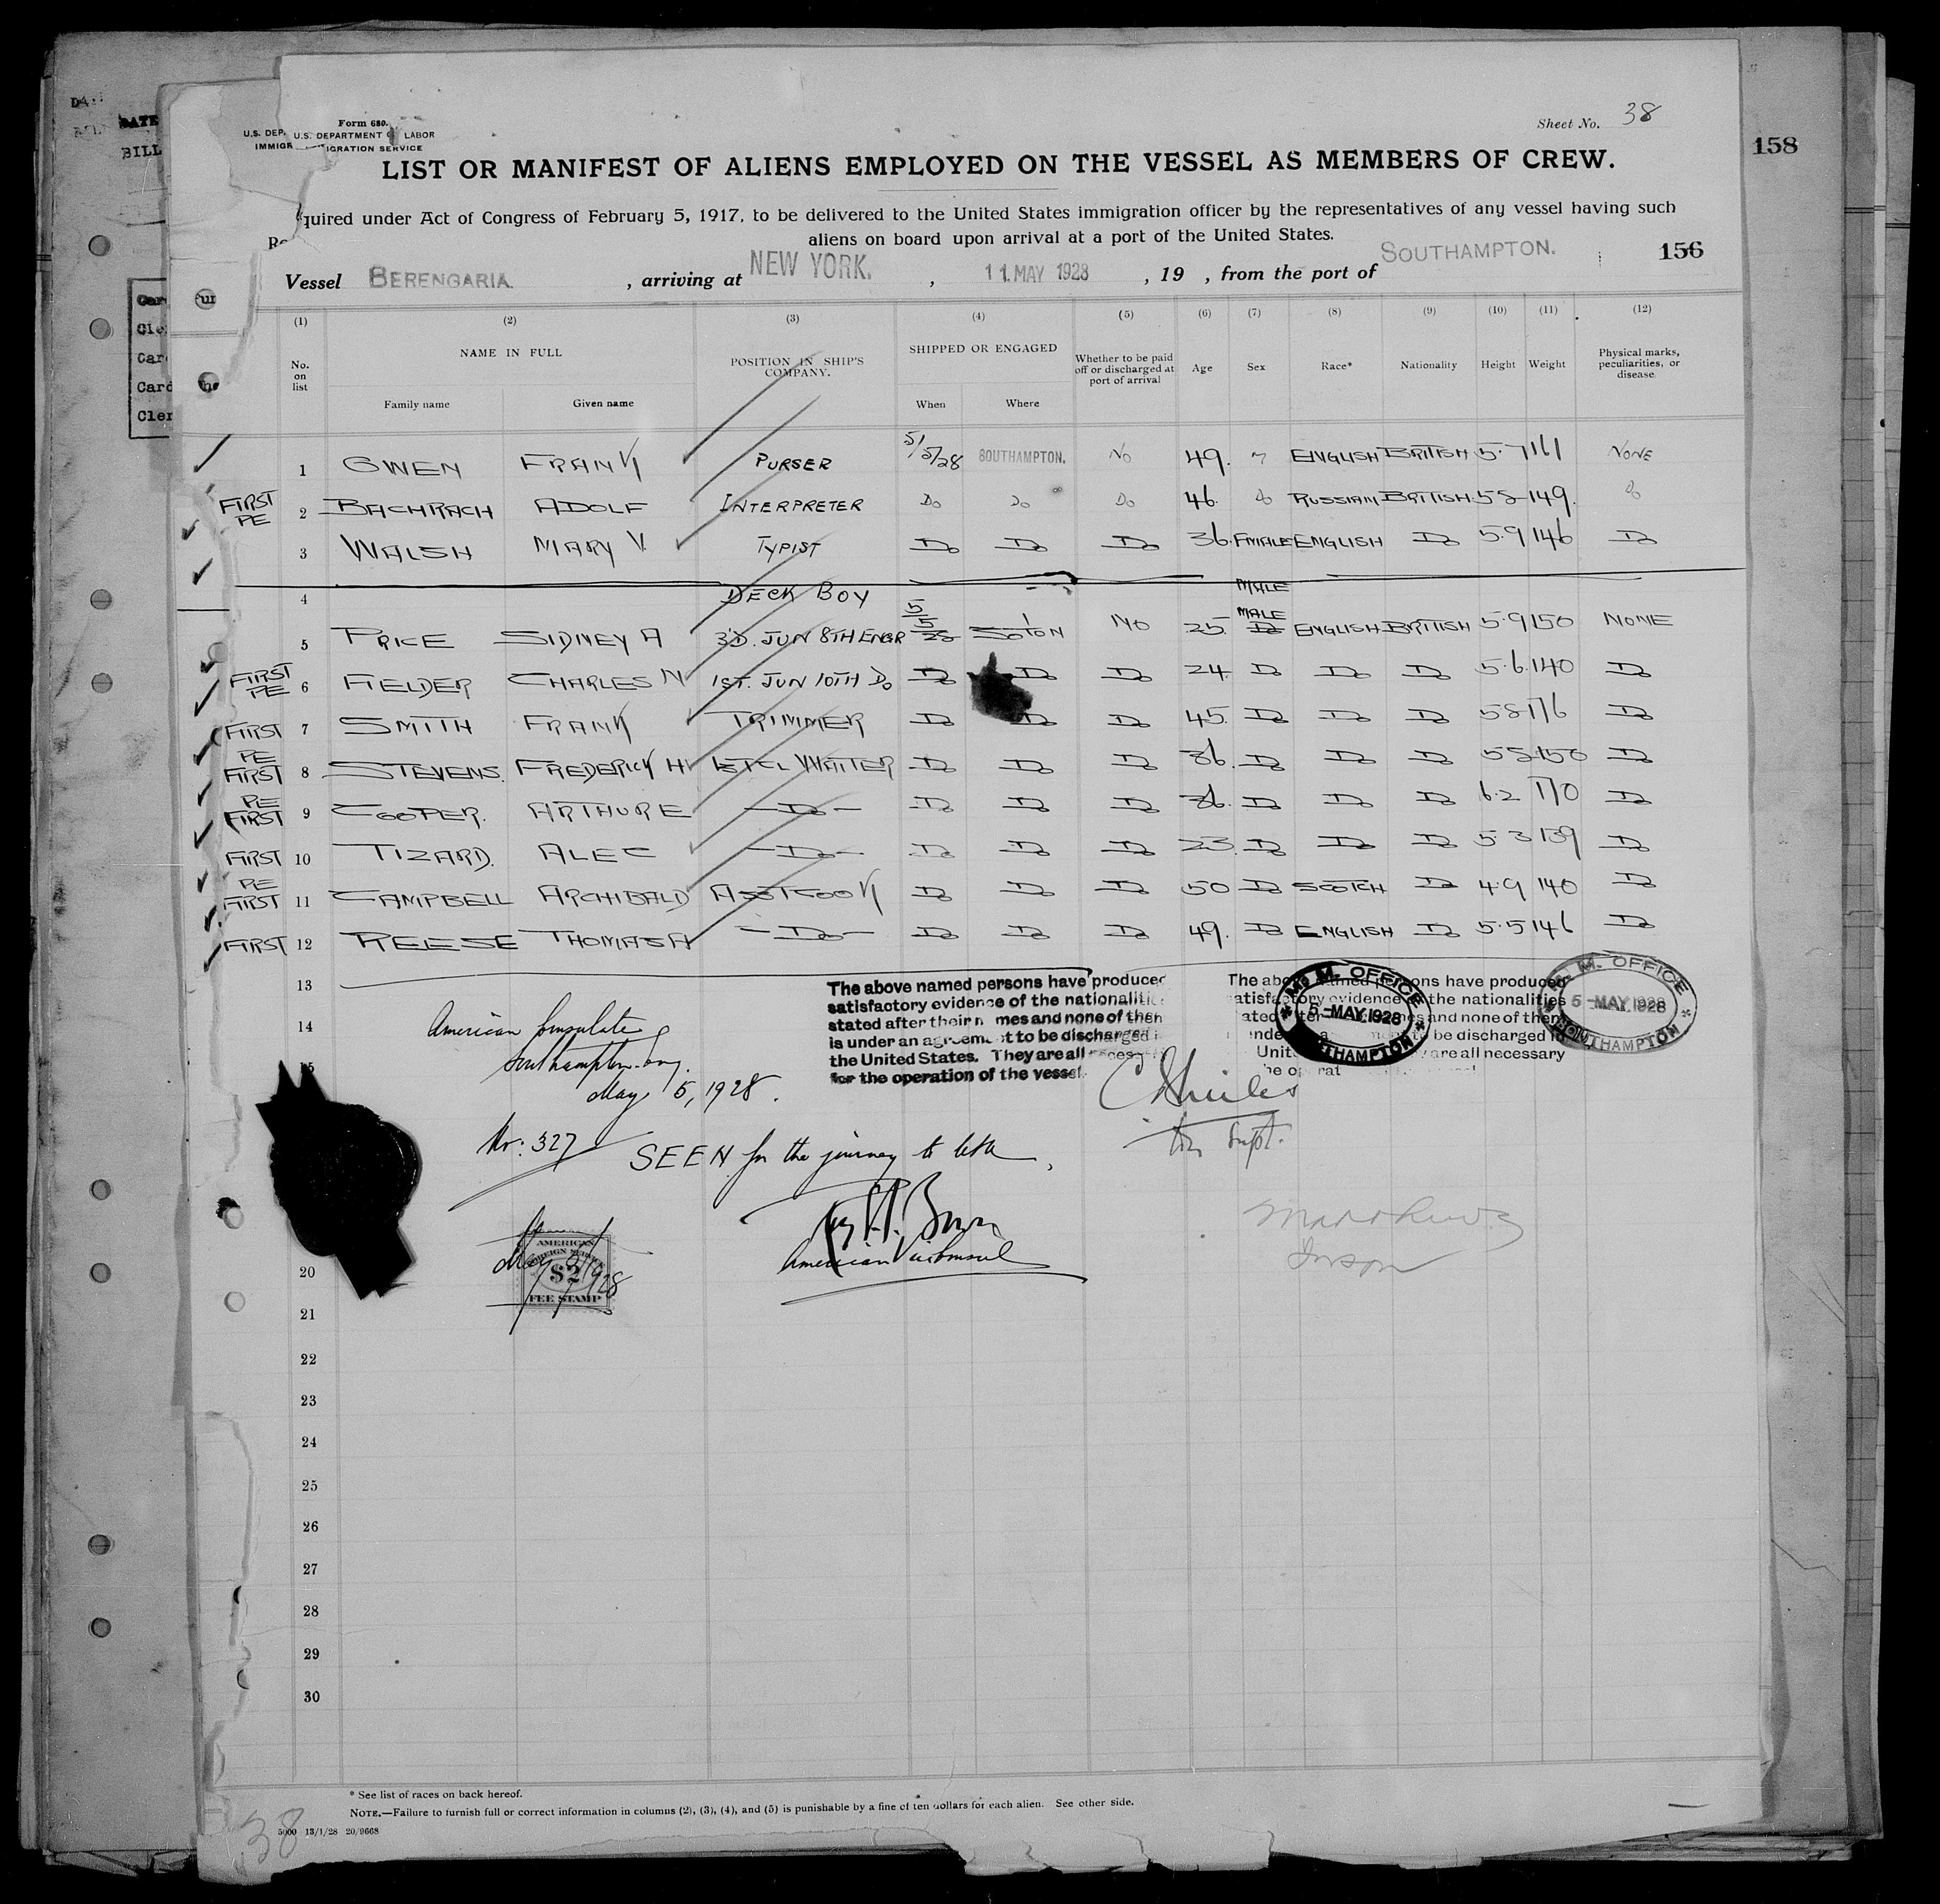 DATE
BILL
Form 680.
U.S. DEP. U.S. DEPARTMENT OF LABOR
IMMIGR IGRATION SERVICE
Sheet No. 38
158
LIST OR MANIFEST OF ALIENS EMPLOYED ON THE VESSEL AS MEMBERS OF CREW.
quired under Act of Congress of February 5, 1917, to be delivered to the United States immigration officer by the representatives of any vessel having such
aliens on board upon arrival at a port of the United States.
156
Vessel BERENGARIA. , arriving at NEW YORK. , 11 MAY 1928 , 19 , from the port of SOUTHAMPTON.
(1) (2) (3) (4) (5) (6) (7) (8) (9) (10) (11) (12)
No. on list NAME IN FULL POSITION IN SHIP'S COMPANY. SHIPPED OR ENGAGED Whether to be paid off or discharged at port of arrival Age Sex Race* Nationality Height Weight Physical marks, peculiarities, or disease
Family name Given name When Where
1 GWEN FRANK PURSER 5/5/28 SOUTHAMPTON. NO 49. ENGLISH BRITISH 5.7 161 NONE
FIRST PE 2 BACHRACH ADOLF INTERPRETER Do Do Do 46. do RUSSIAN BRITISH 5 8 149. do
3 WALSH MARY V. TYPIST Do Do Do 36. FMALE ENGLISH Do 5.9 146 Do
4 DECK BOY MALE
5 PRICE SIDNEY A 3'D. JUN 8TH ENGR 5/5/28 SOTON NO 25. MALE Do ENGLISH BRITISH 5.9 150 NONE
FIRST PE 6 FIELDER CHARLES N 1ST. JUN 10TH Do Do Do Do 24. Do Do Do 5.6. 140 Do
FIRST 7 SMITH FRANK TRIMMER Do Do Do 45. Do Do Do 5 8 176 Do
PE FIRST 8 STEVENS. FREDERICK H 1STCL WAITER Do Do Do 36. Do Do Do 5 8 150 Do
PE FIRST 9 COOPER. ARTHUR E —Do— Do Do Do 36. Do Do Do 6.2 170 Do
FIRST 10 TIZARD. ALEC —Do— Do Do Do 23. Do Do Do 5.3 139 Do
PE FIRST 11 CAMPBELL ARCHIBALD ASST COOK Do Do Do 50 Do SCOTCH Do 4.9 140 Do
FIRST 12 REESE THOMAS A —Do— Do Do Do 49. Do ENGLISH Do 5.5 146 Do
13
The above named persons have produced
satisfactory evidence of the nationalitie
stated after their names and none of them
is under an agreement to be discharged i
the United States. They are all necess
for the operation of the vessel.
The above named persons have produced
atisfactory evidence the nationalities
ated ter es and none of them
ende be discharged in
Unit are all necessary
M. M. OFFICE
5-MAY.1928
SOUTHAMPTON
M. M. OFFICE
5-MAY.1928
SOUTHAMPTON
14
American Consulate
Southampton. Eng.
May 5, 1928.
for Supt.
Nr: 327
SEEN for the journey to U.S.A.
American Vice Consul
AMERICAN
FOREIGN SERVICE
$2
FEE STAMP
May 5/1928
20
21
22
23
24
25
26
27
28
29
30
* See list of races on back hereof.
NOTE.—Failure to furnish full or correct information in columns (2), (3), (4), and (5) is punishable by a fine of ten dollars for each alien. See other side.
5000 13/1/28 20/9668
38